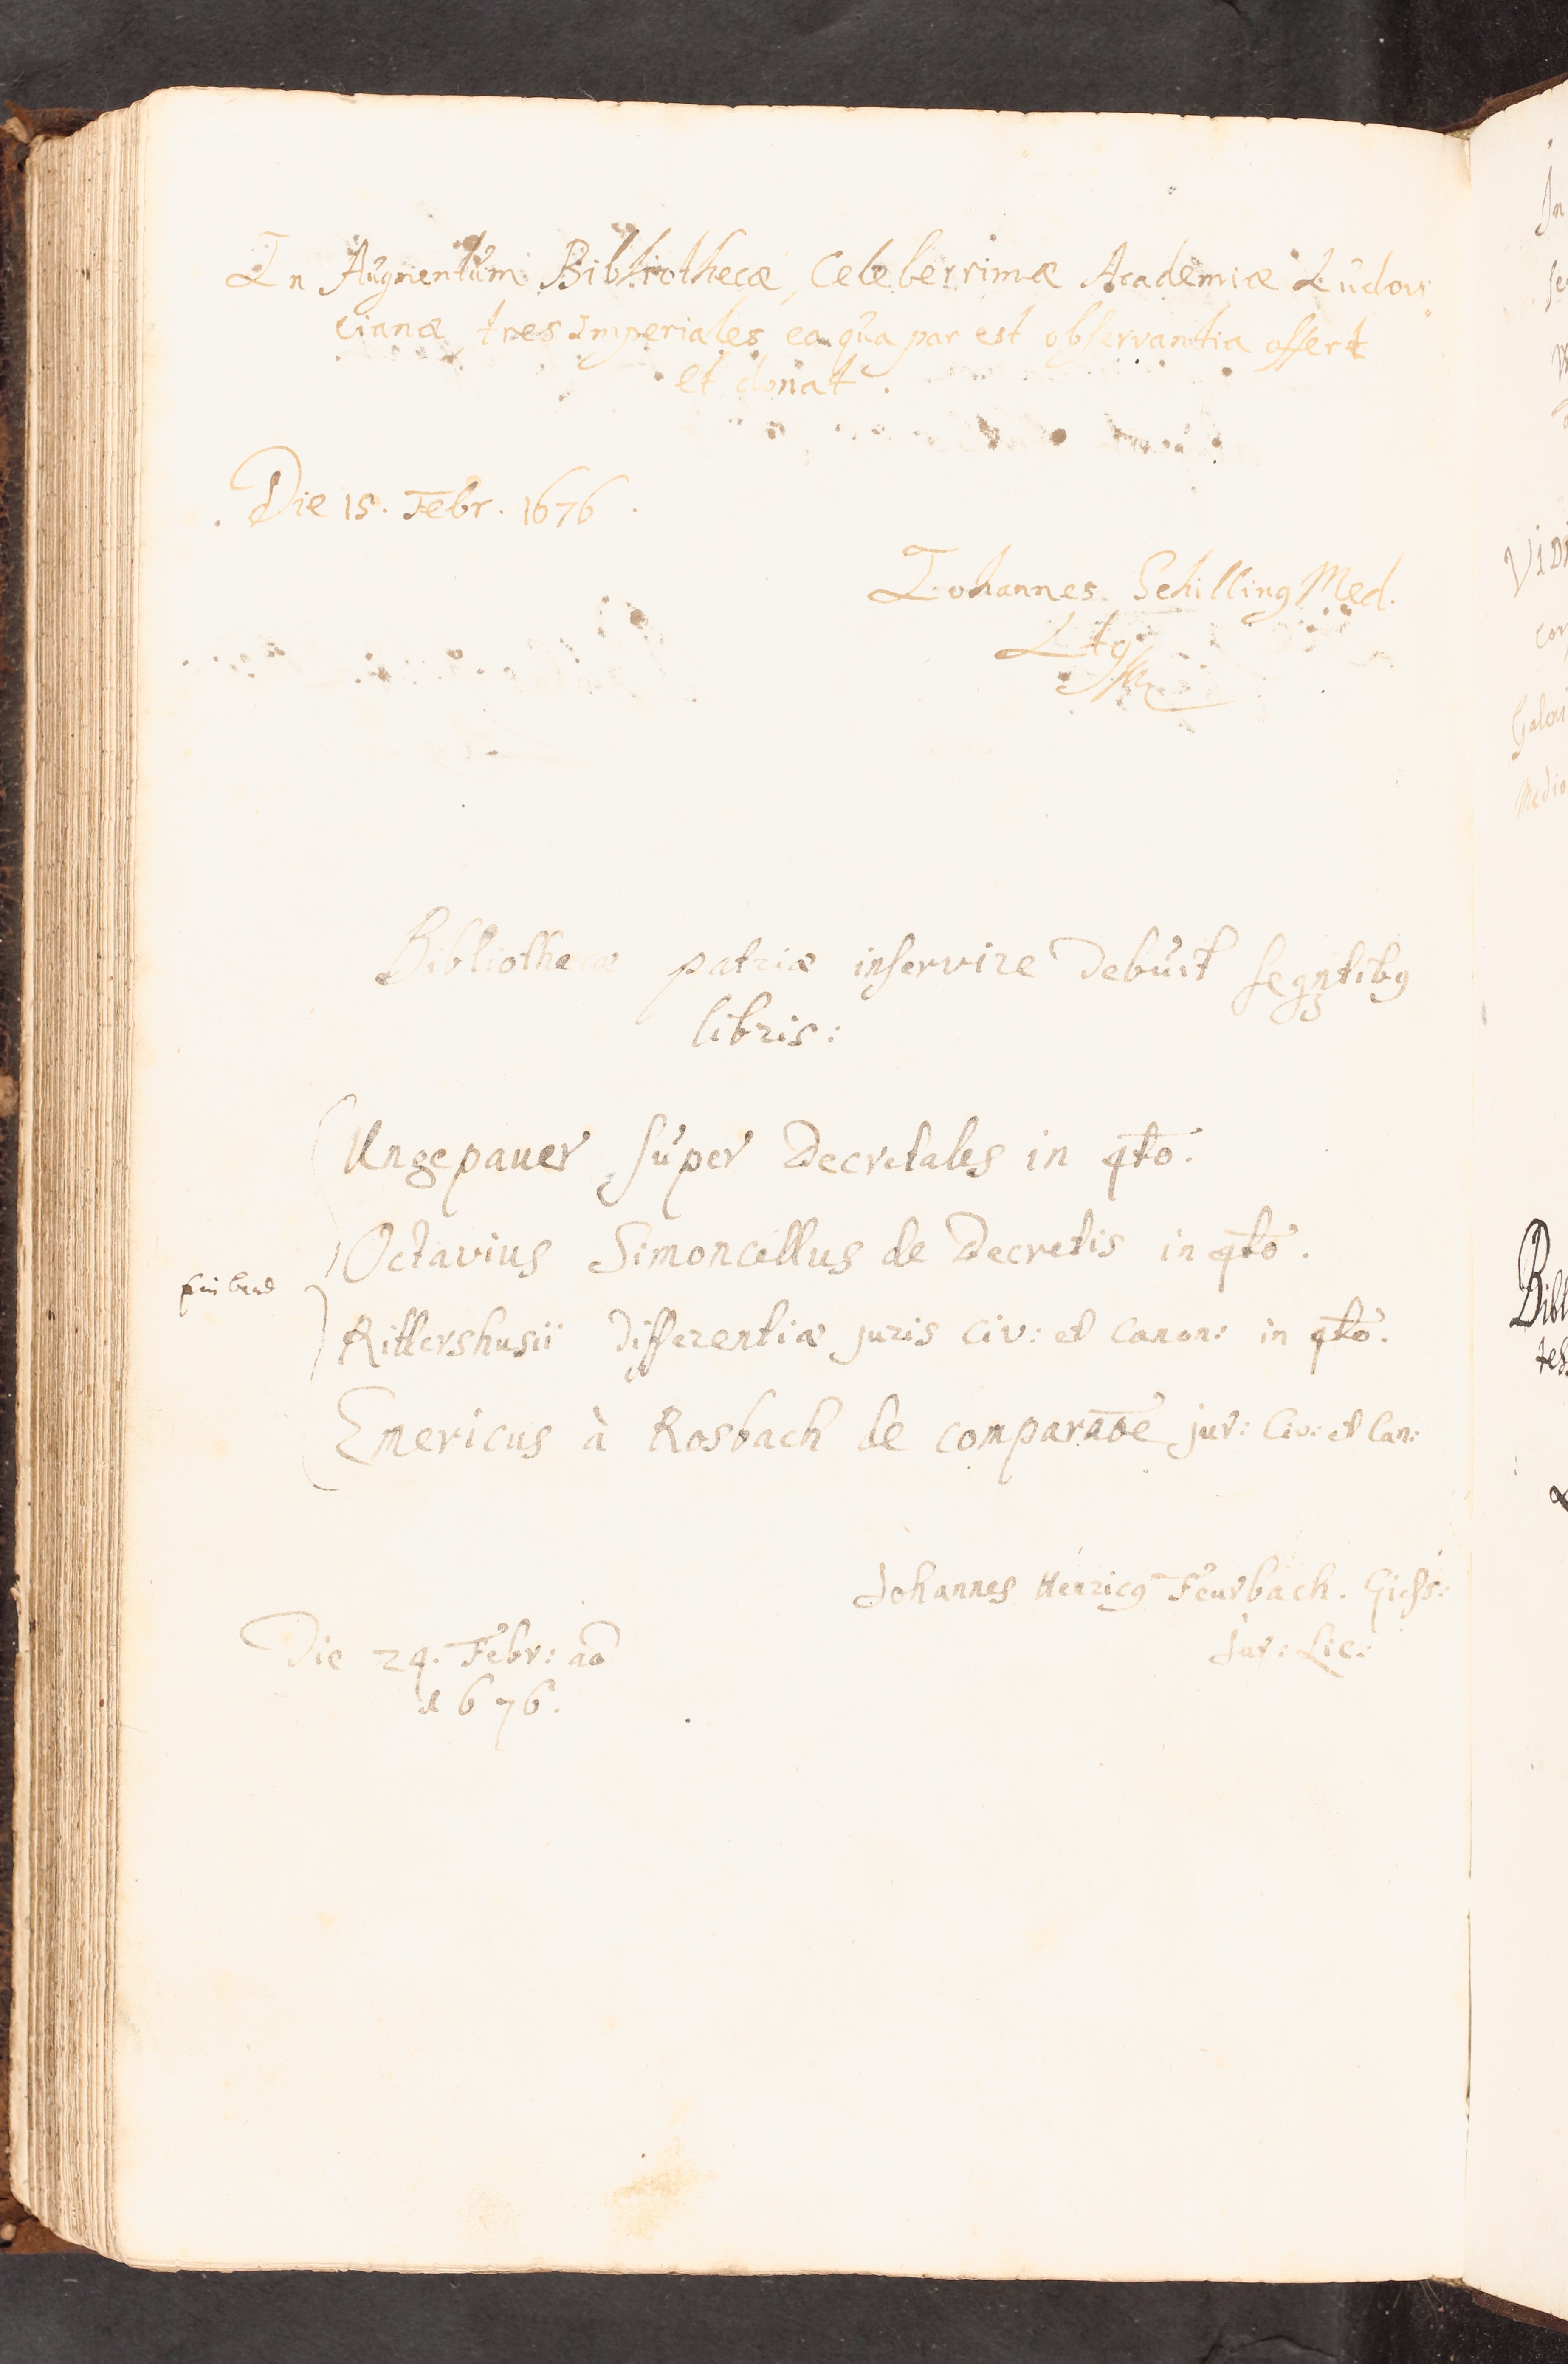 In Augmentum Bibliothecæ, Celeberrimæ Academiæ Ludovi
cianæ tres Imperiales ea qua par est observantia offert
et donat.
Die 15. Febr. 1676.
Johannes Schilling Med.
Bibliothecæ patriæ inservire debuit seqntibg
libris:
Ungepauer super Decretales in qto.
Octavius Simoncellus de Decretis in qto.
ein band
Rittershusii differentiæ juris civ: et canon: in qto.
Emericus à Rosbach de comparaoe jur: Civ: et Can:
Johannes Henricg Feurbach. Giess:
Jur: Lic:
Die 29. Febr: ao
1676.
In
VIDI
Galeni
Medio
Bibl